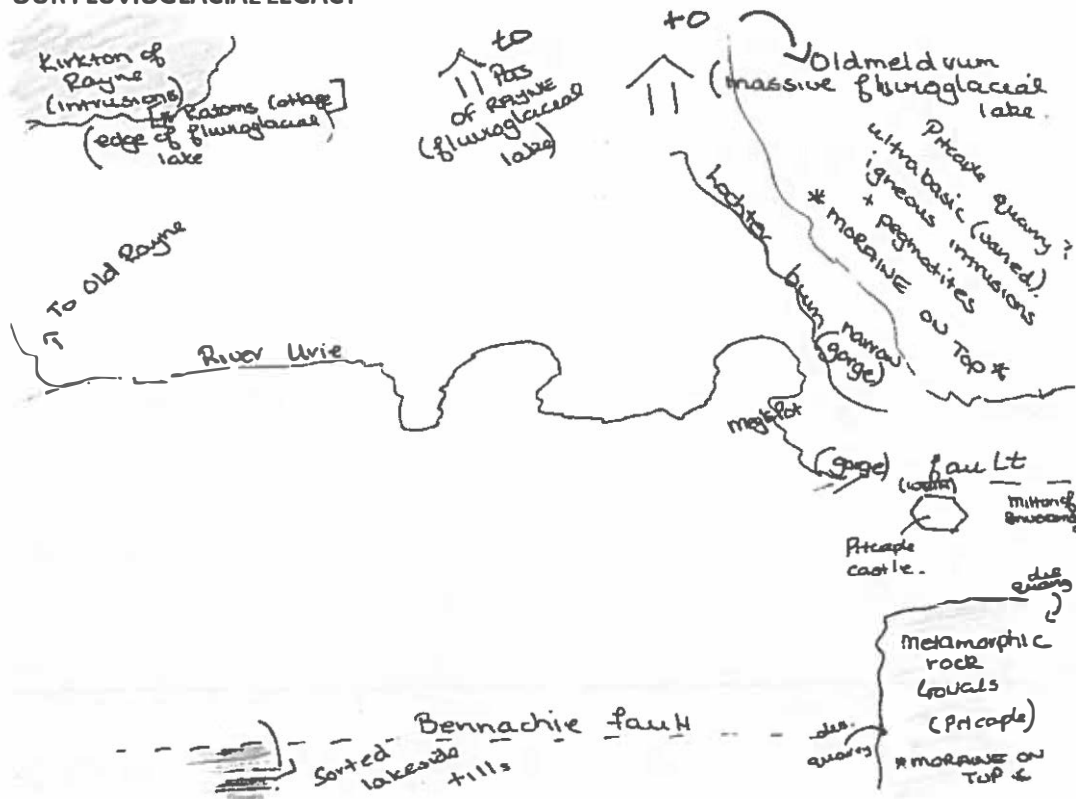 OUR FLUVIOGLACIAL LEGACY
Kirkton of
Rayne
(intrusions)
* Ratoms Cottage
(edge of fluvioglacial
lake)
to
Pas
OF RAYNE
(fluvioglacial
lake)
to
Oldmeldrum
(massive fluvioglacial
lake
Pitcaple quarry?
ultrabasic (varied).
igneous intrusions
+ pegmatites
* MORAINE ON TOP *
Lochter
burn
narrow
(gorge)
To Old Rayne
River Urie
(gorge)
fault
Milton of
Pitcaple
castle.
dis
quarry
metamorphic
rock
(Pitcaple)
* MORAINE ON
TOP *
Bennachie fault
dis.
quarry
Sorted
lakeside
tills